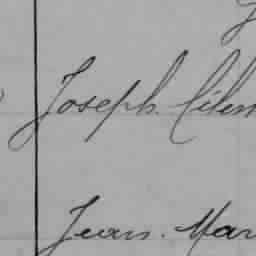 Joseph. Cilem
Jean. Mar